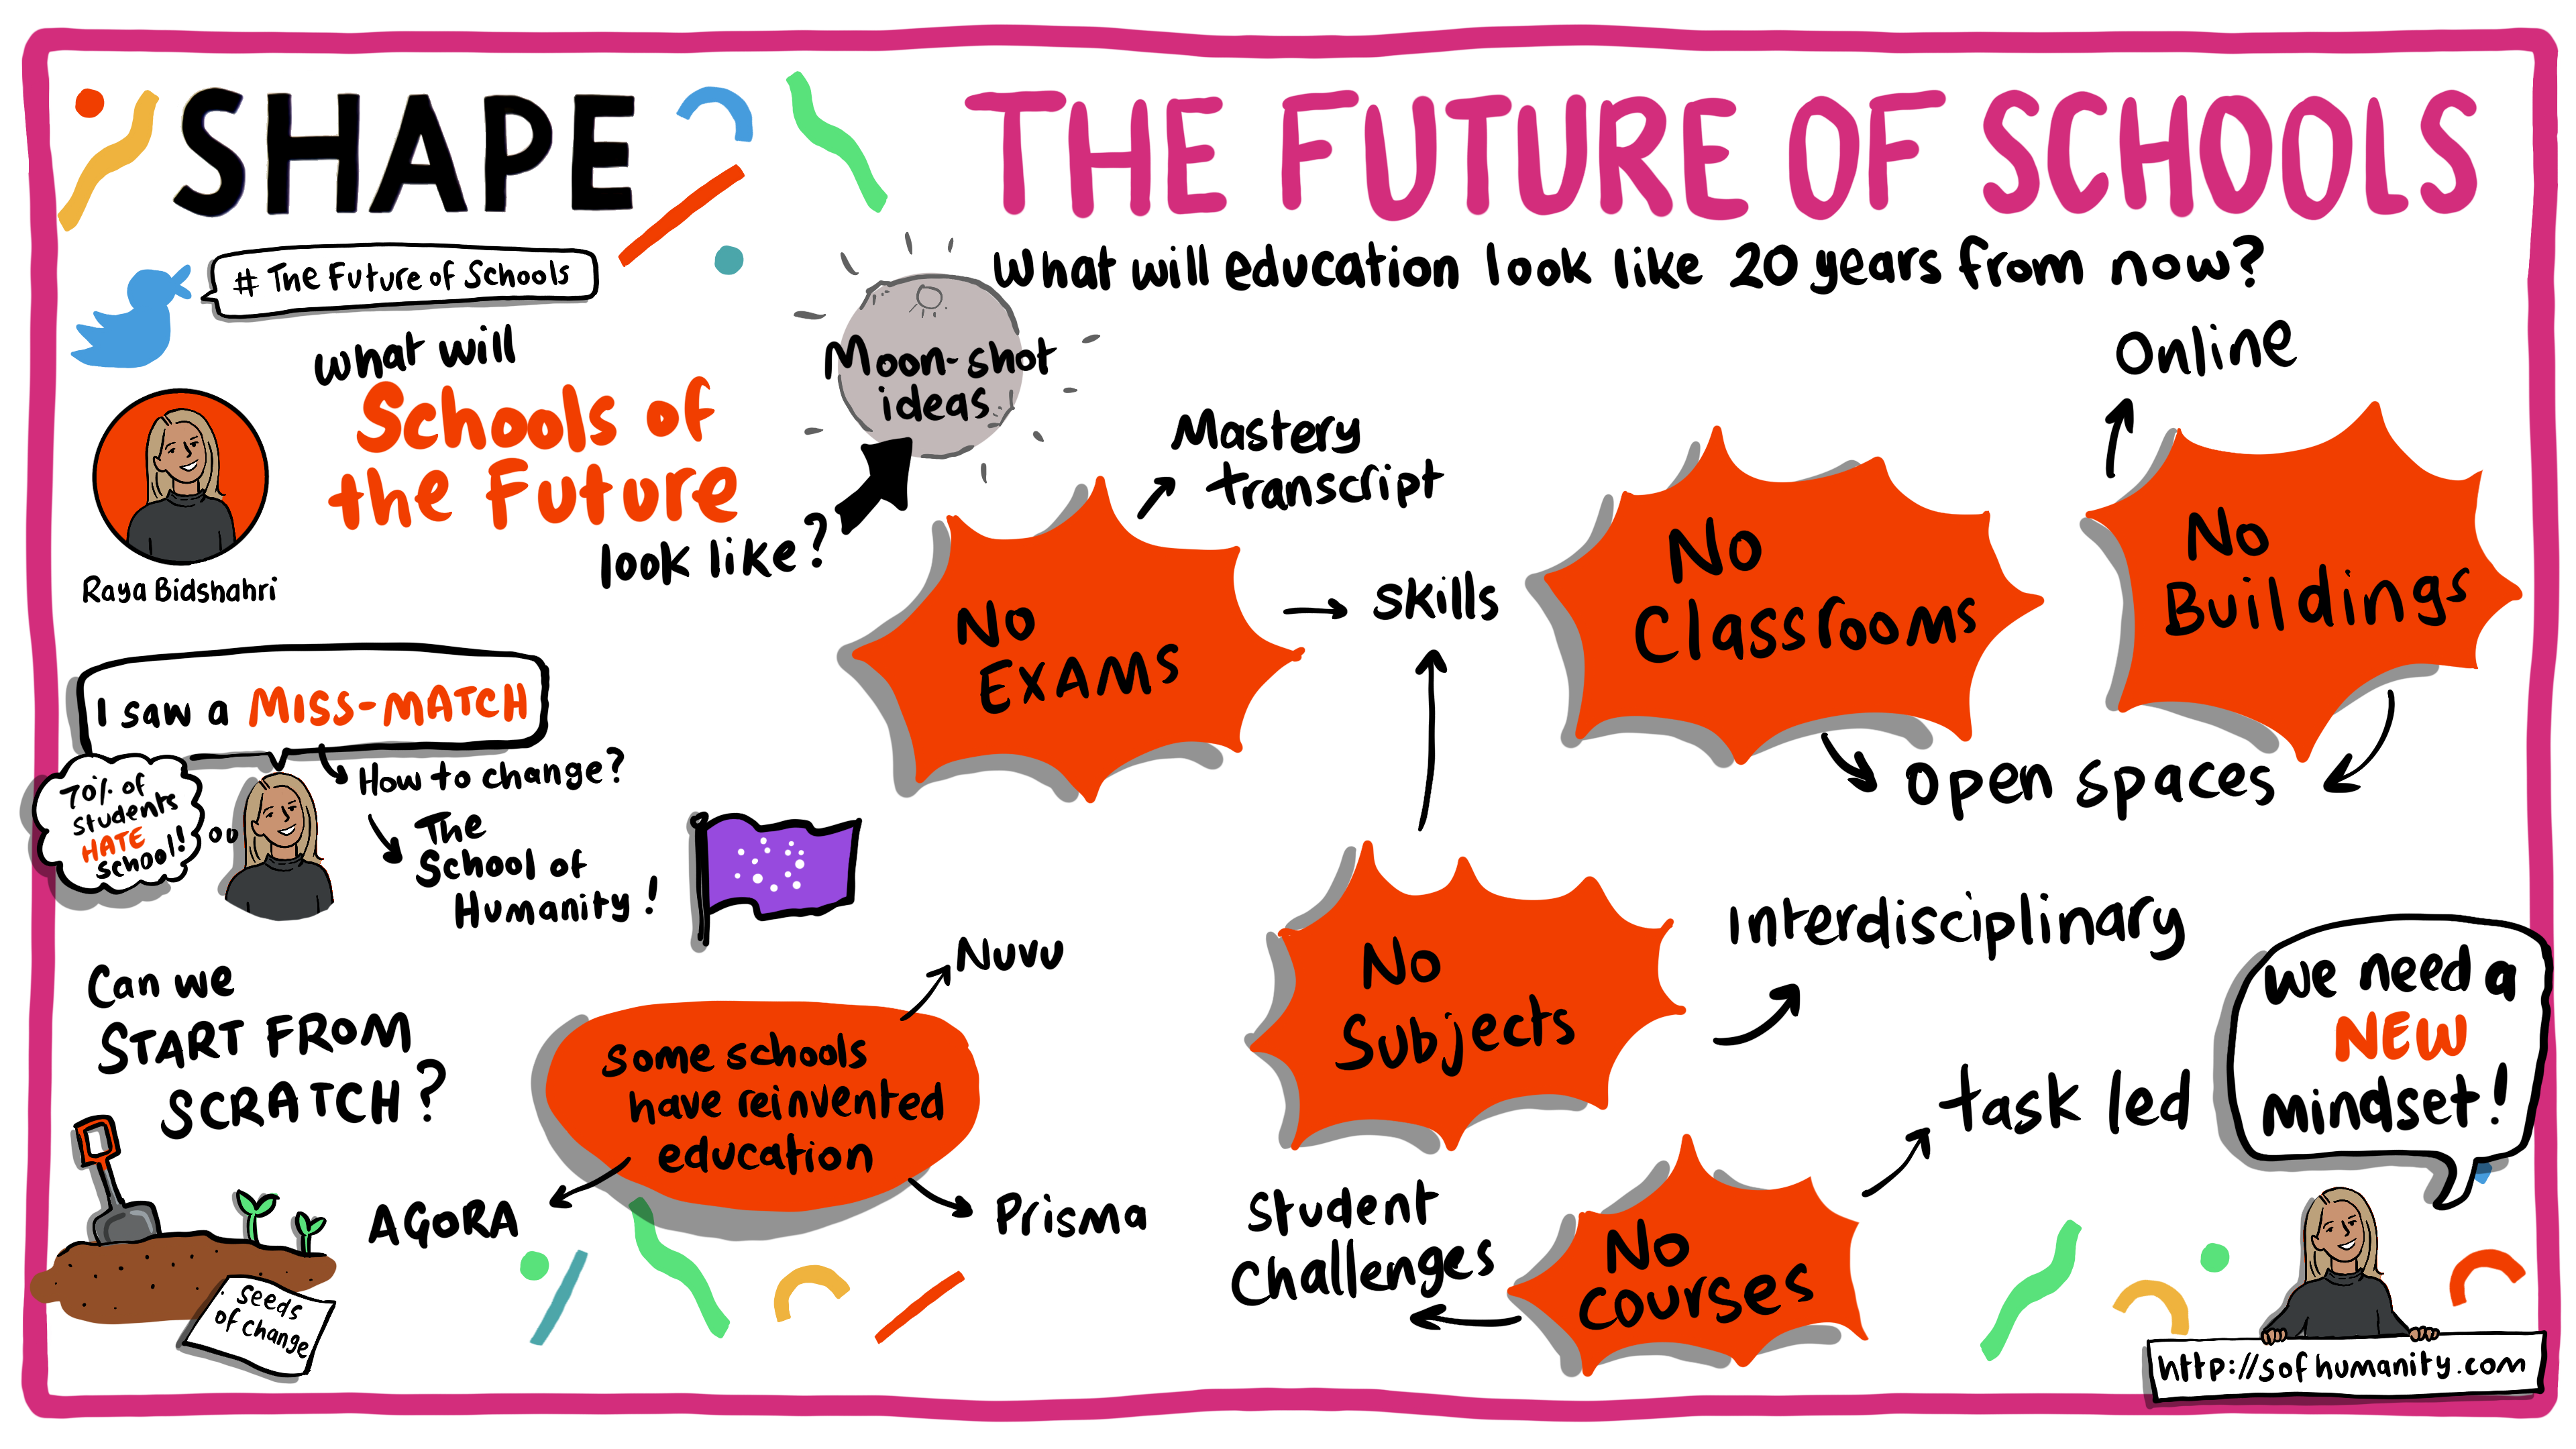 SHAPE
THE FUTURE OF SCHOOLS
What will education look like 20 years from now?
# The Future of Schools
what will
Schools of
the Future
look like?
Raya Bidshahri
Moon-shot
ideas
Mastery
transcript
No
EXAMS
skills
No
Classrooms
Online
No
Buildings
open spaces
I saw a MISS-MATCH
70% of
students
HATE
school!
How to change?
The
School of
Humanity!
Can we
START FROM
SCRATCH?
seeds
of change
some schools
have reinvented
education
Nuvu
AGORA
Prisma
No
Subjects
Interdisciplinary
No
courses
task led
Student
Challenges
We need a
NEW
mindset!
http://sofhumanity.com